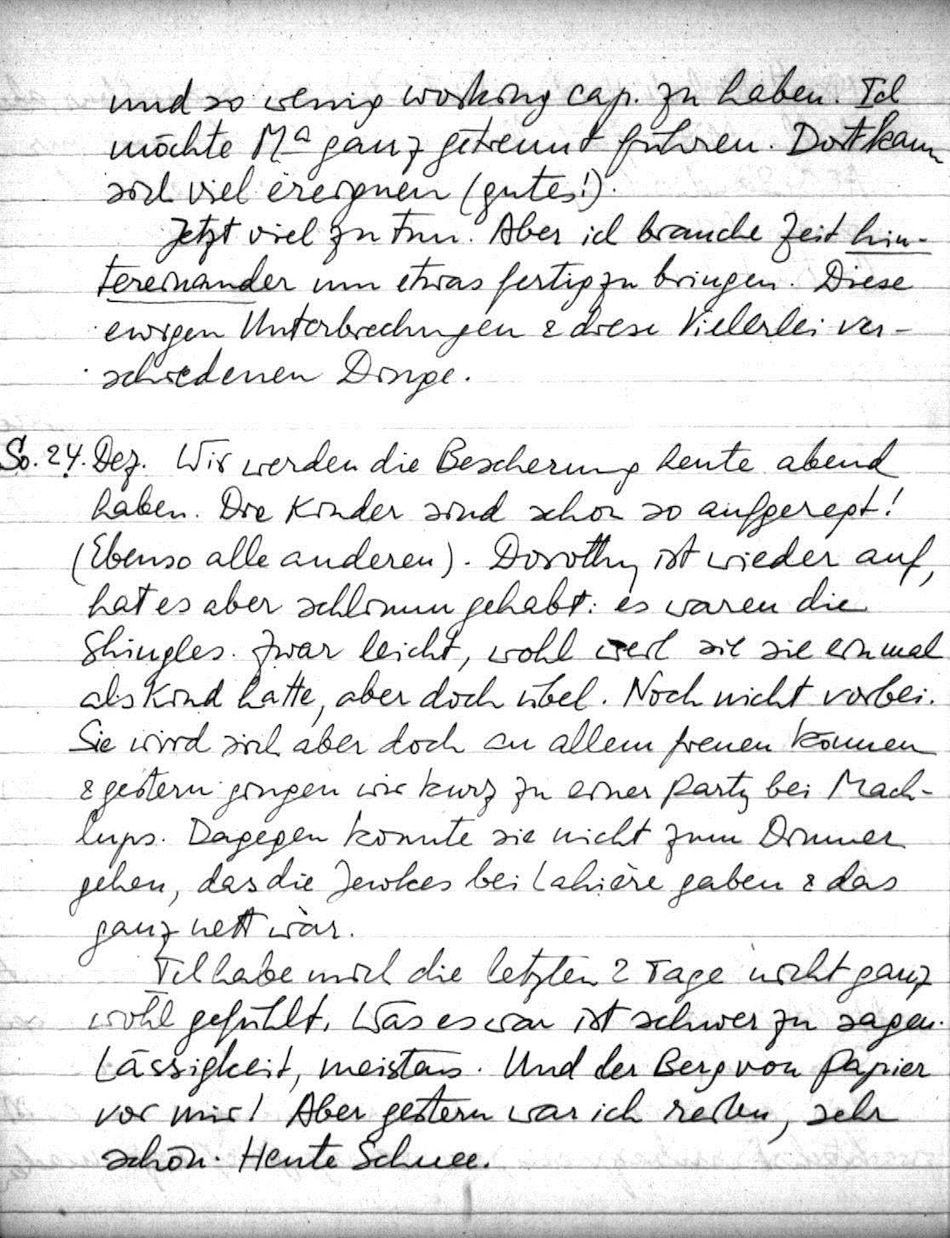 und so wenig working cap. zu haben. Ich
möchte Mª ganz getrennt führen. Dort kann
sich viel ereignen (gutes!).
Jetzt viel zu tun. Aber ich brauche Zeit hin-
tereinander um etwas fertig zu bringen. Diese
ewigen Unterbrechungen & diese Vielerlei ver-
schiedenen Dinge.
So. 24. Dez. Wir werden die Bescherung heute abend
haben. Die Kinder sind schon so aufgeregt!
(Ebenso alle anderen). Dorothy ist wieder auf,
hat es aber schlimm gehabt: es waren die
Shingles. Zwar leicht, wohl weil sie sie einmal
als Kind hatte, aber doch übel. Noch nicht vorbei.
Sie wird sich aber doch an allem freuen können
& gestern gingen wir kurz zu einer Party bei Mach-
lups. Dagegen konnte sie nicht zum Dinner
gehen, das die Jenokes bei Lahière gaben & das
ganz nett war.
Ich habe mich die letzten 2 Tage nicht ganz
wohl gefühlt. Was es war ist schwer zu sagen.
Lässigkeit, meistens. Und der Berg von Papier
vor mir! Aber gestern war ich reiten, sehr
schön. Heute Schnee.